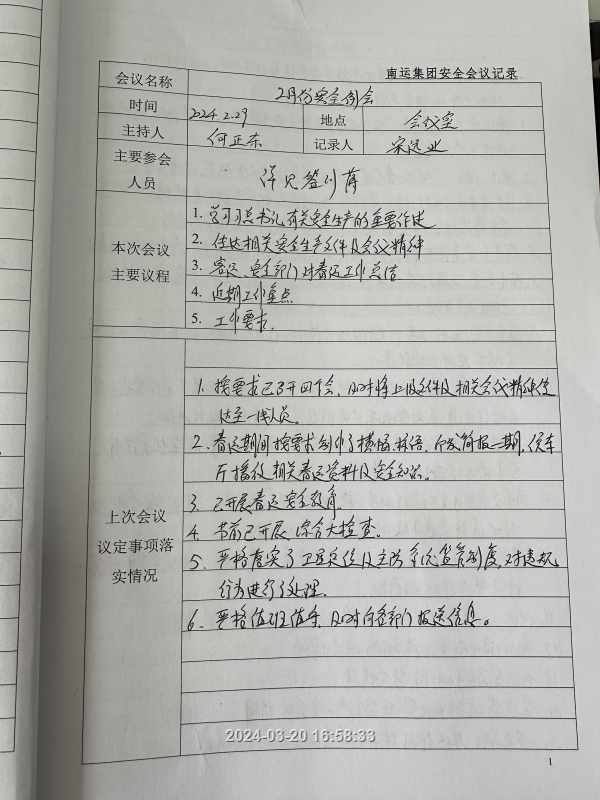 南运集团安全会议记录
会议名称 2月份安全例会
时间 2024.2.29 地点 会议室
主持人 何正东 记录人 宋远业
主要参会
人员 详见签到簿
本次会议
主要议程
1. 学习习总书记有关安全生产的重要作述
2. 传达相关安全生产文件及会议精神
3. 客运、安全部门对春运工作总结
4. 近期工作重点
5. 工作要求.
上次会议
议定事项落
实情况
1. 按要求已召开四个会, 及时将上级文件及相关会议精神传
达至一线人员。
2. 春运期间按要求制作了横幅、标语、下发简报一期, 候车
厅播放相关春运资料及安全知识。
3. 已开展春运安全教育.
4. 节前已开展综合大检查。
5. 严格落实了卫星定位及主防系统监管制度, 对违规
行为进行了处理.
6. 严格值班值守, 及时向各部门报送信息。
2024-03-20 16:58:33
1